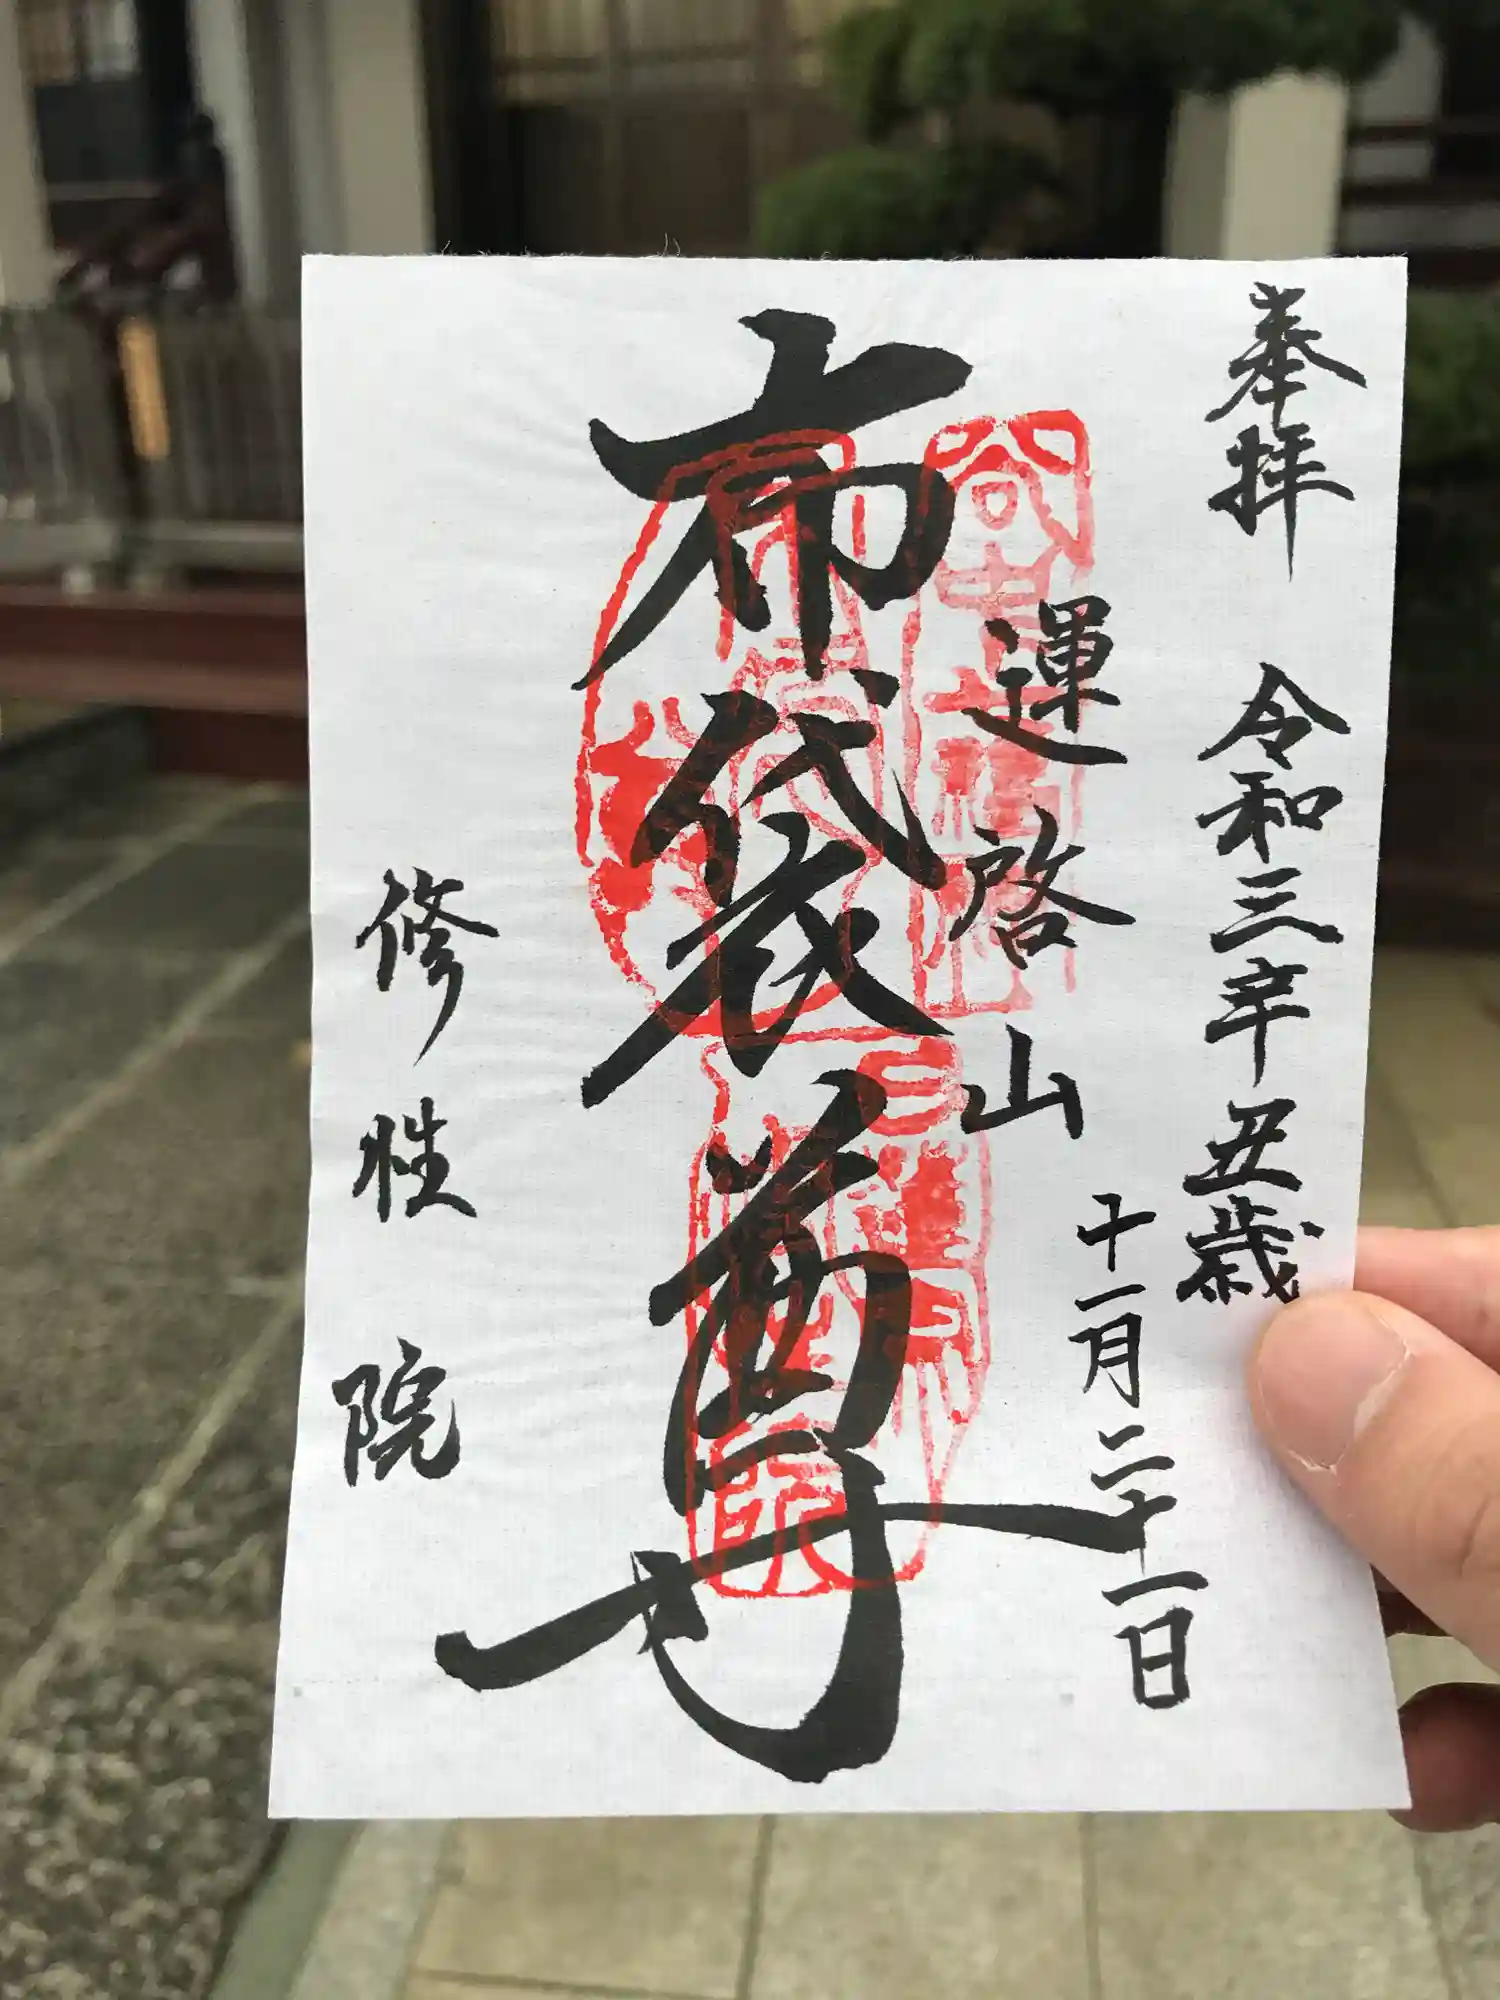 奉拝
令和三辛丑歳
十一月二十一日
運啓山
布袋尊
修性院